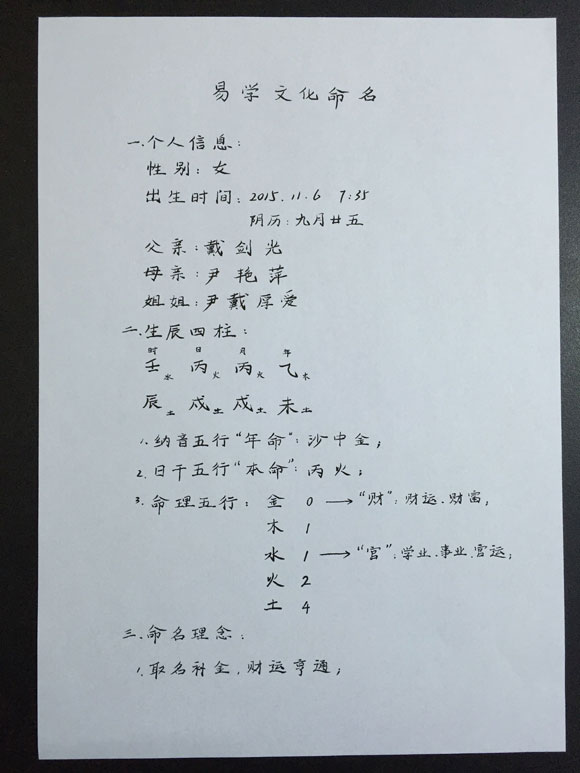 易学文化命名
一.个人信息：
性别：女
出生时间：2015.11.6 7:35
阴历：九月廿五
父亲：戴剑光
母亲：尹艳萍
姐姐：尹戴厚爱
二.生辰四柱：
时 日 月 年
壬水 丙火 丙火 乙木
辰土 戌土 戌土 未土
1.纳音五行“年命”：沙中金；
2.日干五行“本命”：丙火；
3.命理五行：金 0 →“财”：财运.财富；
木 1
水 1 →“官”：学业.事业.官运；
火 2
土 4
三.命名理念：
1.取名补金，财运亨通；